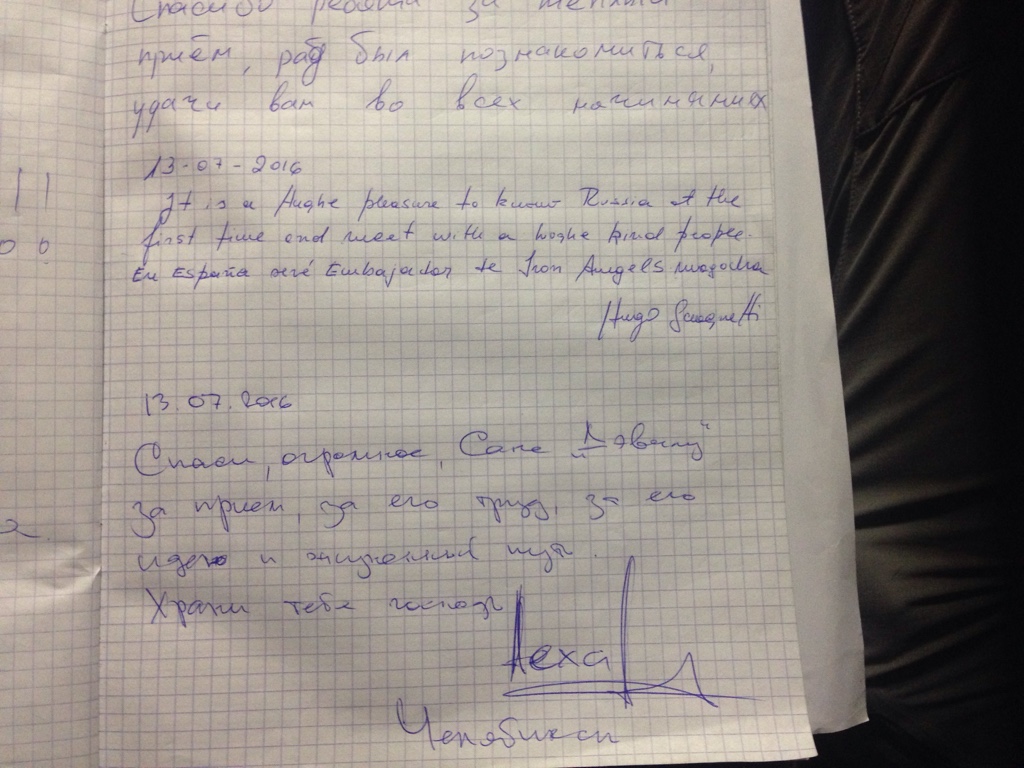 Спасибо ребята за теплый
приём, рад был познакомиться,
удачи вам во всех начинаниях
13-07-2016
It is a hughe pleasure to know Russia at the
first time and meet with a hoghe kind people.
En España seré Embajador de Iron Angels mogocha
Hugo
13.07.2016
Спаси, огромное, Сане
за прием, за его труд, за его
идею и жизненный путь.
Храни тебя господь
Леха
Челябинск
11